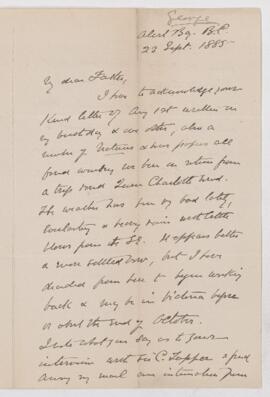 George
Alert Bay. B.C.
22 Sept. 1885
My dear Father,
I have to acknowledge your
kind letter of Aug 1st written on
my birthday & one other, also a
number of Nations & news papers all
found awaiting me here on return from
a trip round Queen Charlotte Sound.
The weather has been very bad lately,
continuous & heavy rain with
blows from the S.E. It appears better
& more settled now, but I have
decided from here to begin working
back & may be in Victoria before
or about the end of October.
I note what you say as to your
interview with Sir C. Tupper & find
among my mail an intimation from